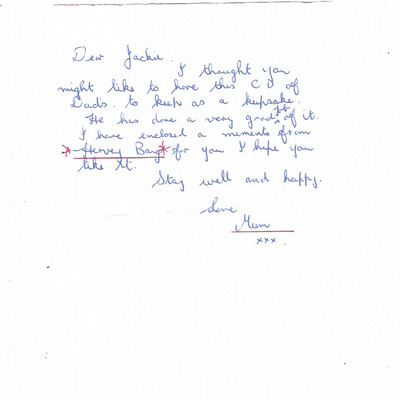 Dear Jackie.
I thought you
might like to have this CD of
Dads. to keep as a keepsake.
He has done a very good of it.
I have enclosed a memento from
*Hervey Bay* for you I hope you
like it.
Stay well and happy.
Love
Mum
xxx.